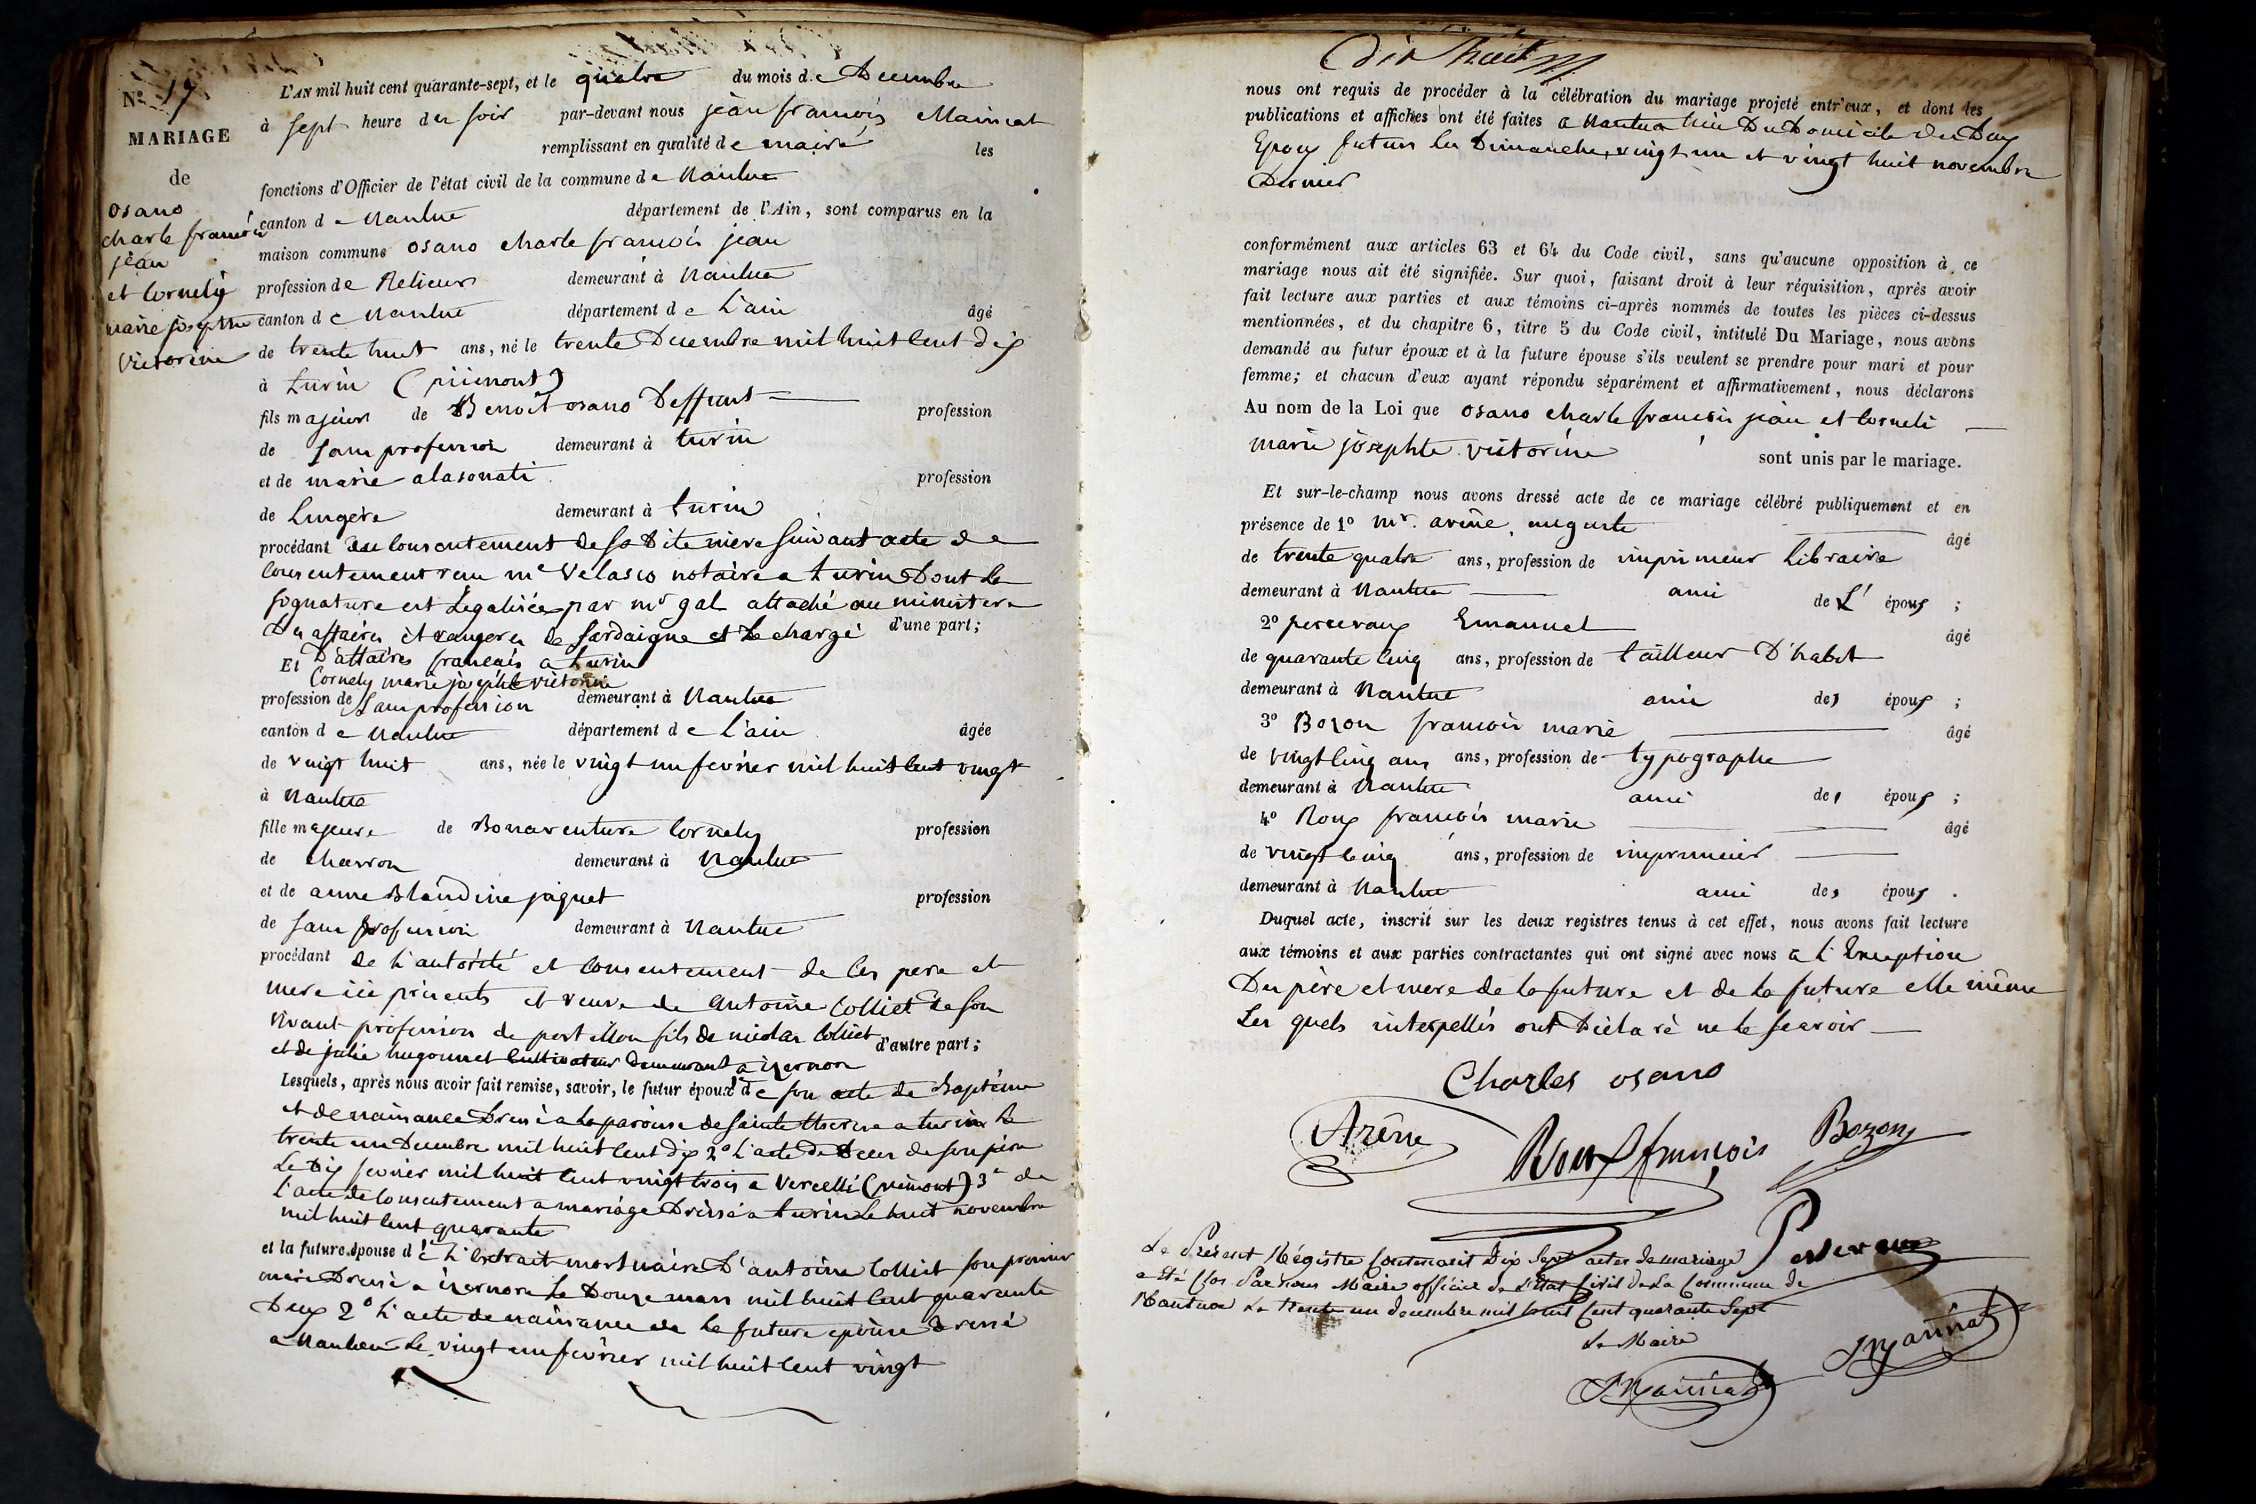 N° 17
MARIAGE
de
osano
charle francois
jean
et Cornely
marie josephte
victorine
L'AN mil huit cent quarante-sept, et le quatre du mois de Decembre
à sept heure du soir par-devant nous jean francois Mainat
remplissant en qualité de maire les
fonctions d'Officier de l'état civil de la commune de Nantua
canton de Nantua département de l'Ain, sont comparus en la
maison commune osano charle francois jean
profession de Relieur demeurant à Nantua
canton de Nantua département de L'ain âgé
de trente huit ans, né le trente Decembre mil huit cent dix
à turin (piémont)
fils majeur de Benoit osano Deffunt profession
de sans profession demeurant à turin
et de marie alasonati profession
de Lingère demeurant à turin
procédant du consentement de sa dite mere suivant acte de
consentement reçu me Velasco notaire a turin Dont la
signature est Légalisée par mr gal attaché au ministere
Des affaires étrangeres de sardaigne et le chargé d'une part;
D'affaires français a turin
Et Cornely marie josephte victorine
profession de sans profession demeurant à Nantua
canton de Nantua département de L'ain âgée
de vingt huit ans, née le vingt un fevrier mil huit cent vingt
à Nantua
fille majeure de Bonaventure Cornely profession
de charron demeurant à Nantua
et de anne Blandine jaquet profession
de sans profession demeurant à Nantua
procédant de L'autorité et consentement de ses pere et
mere ici présents et veuve de antoine Colliet de son
vivant profession de postillon fils de nicolas Colliet d'autre part;
et de julie hugonnet Cultivateur demeurant a izernore
Lesquels, après nous avoir fait remise, savoir, le futur époux 1° de son acte de Baptême
et de naissance Dressé a la paroisse de sainte therese a turin le
trente un Decembre mil huit cent dix 2° L'acte de Deces de son père
Le Dix fevrier mil huit cent vingt trois a Vercelli (piémont) 3° de
L'acte de consentement a mariage Dressé a turin le huit novembre
mil huit cent quarante
et la future épouse d 1° L'extrait mortuaire D'antoine Colliet son premier
mari Dressé a izernore Le Douze mars mil huit cent quarante
Deux 2° L'acte de naissance de la future epouse Dressé
a Nantua Le vingt un fevrier mil huit cent vingt
Dix huit
nous ont requis de procéder à la célébration du mariage projeté entr'eux, et dont les
publications et affiches ont été faites a Nantua lieu Du Domicile des Deux
Epoux futurs les Dimanches vingt un et vingt huit novembre
Dernier
conformément aux articles 63 et 64 du Code civil, sans qu'aucune opposition à ce
mariage nous ait été signifiée. Sur quoi, faisant droit à leur réquisition, après avoir
fait lecture aux parties et aux témoins ci-après nommés de toutes les pièces ci-dessus
mentionnées, et du chapitre 6, titre 5 du Code civil, intitulé Du Mariage, nous avons
demandé au futur époux et à la future épouse s'ils veulent se prendre pour mari et pour
femme; et chacun d'eux ayant répondu séparément et affirmativement, nous déclarons
Au nom de la Loi que osano charle francois jean et Corneli
marie josephte victorine sont unis par le mariage.
Et sur-le-champ nous avons dressé acte de ce mariage célébré publiquement et en
présence de 1° mr. arène auguste âgé
de trente quatre ans, profession de imprimeur libraire
demeurant à Nantua ami de L' époux ;
2° perceveaux Emanuel âgé
de quarante cinq ans, profession de tailleur D'habit
demeurant à Nantua ami des époux ;
3° Bozon francois marie âgé
de vingt cinq ans ans, profession de typographe
demeurant à Nantua ami des époux ;
4° Roux francois marie âgé
de vingt cinq ans, profession de imprimeur
demeurant à Nantua ami des époux .
Duquel acte, inscrit sur les deux registres tenus à cet effet, nous avons fait lecture
aux témoins et aux parties contractantes qui ont signé avec nous a L'Exception
Des père et mere de la future et de la future elle même
Les quels interpellés ont Déclaré ne le scavoir
Charles osano
Arène
Roux françois
Bozon
Le Présent Régistre Contenant Dix Sept actes de mariage
a été Clos Par nous Maire officier de L'état Civil de La Commune de
Nantua Le trente un decembre mil huit Cent quarante Sept
Le Maire